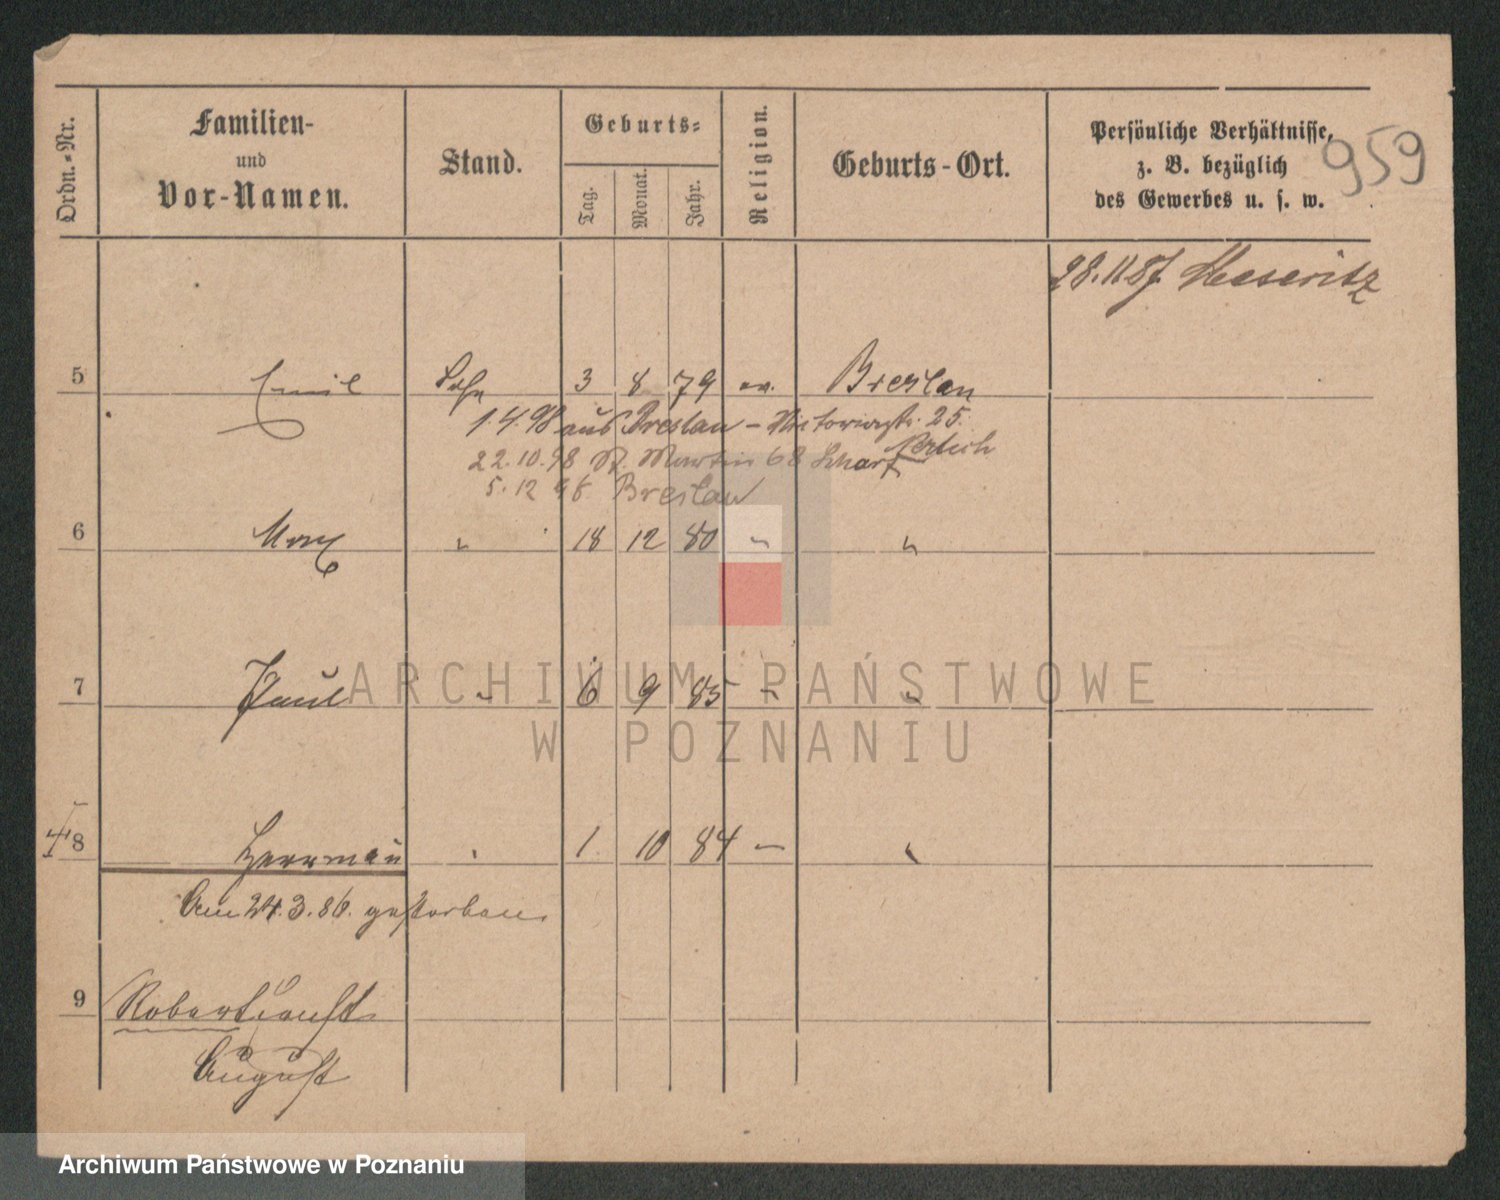 Ordn.-Nr.
Familien-
und
Vor-Namen.
Stand.
Geburts-
Tag.
Monat.
Jahr.
Religion.
Geburts-Ort.
Persönliche Verhältnisse,
z. B. bezüglich
des Gewerbes u. s. w.
959
28.11.87. Meseritz
5 Emil Sohn 3 8 79 ev. Breslau
1.4.98 aus Breslau – Victoriastr. 25.
22.10.98 St. Martin 68 Scharf
5.12 98 Breslau
6 Max " 18 12 80 " "
7 Paul " 6 9 85 " "
8 Herrman " 1 10 84 — "
Am 24.3.86. gestorben.
9 Robert
August
ARCHIWUM PAŃSTWOWE
W POZNANIU
Archiwum Państwowe w Poznaniu